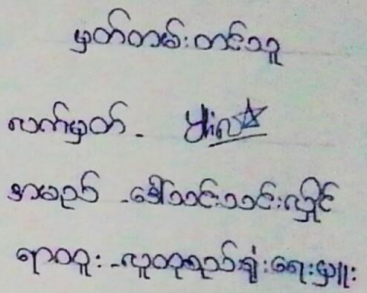 မှတ်တမ်းတင်သူ
လက်မှတ် -
အမည် - ဒေါ်သင်းသင်းလှိုင်
ရာထူး - လူတုရည်ချွံးရေးမှူး